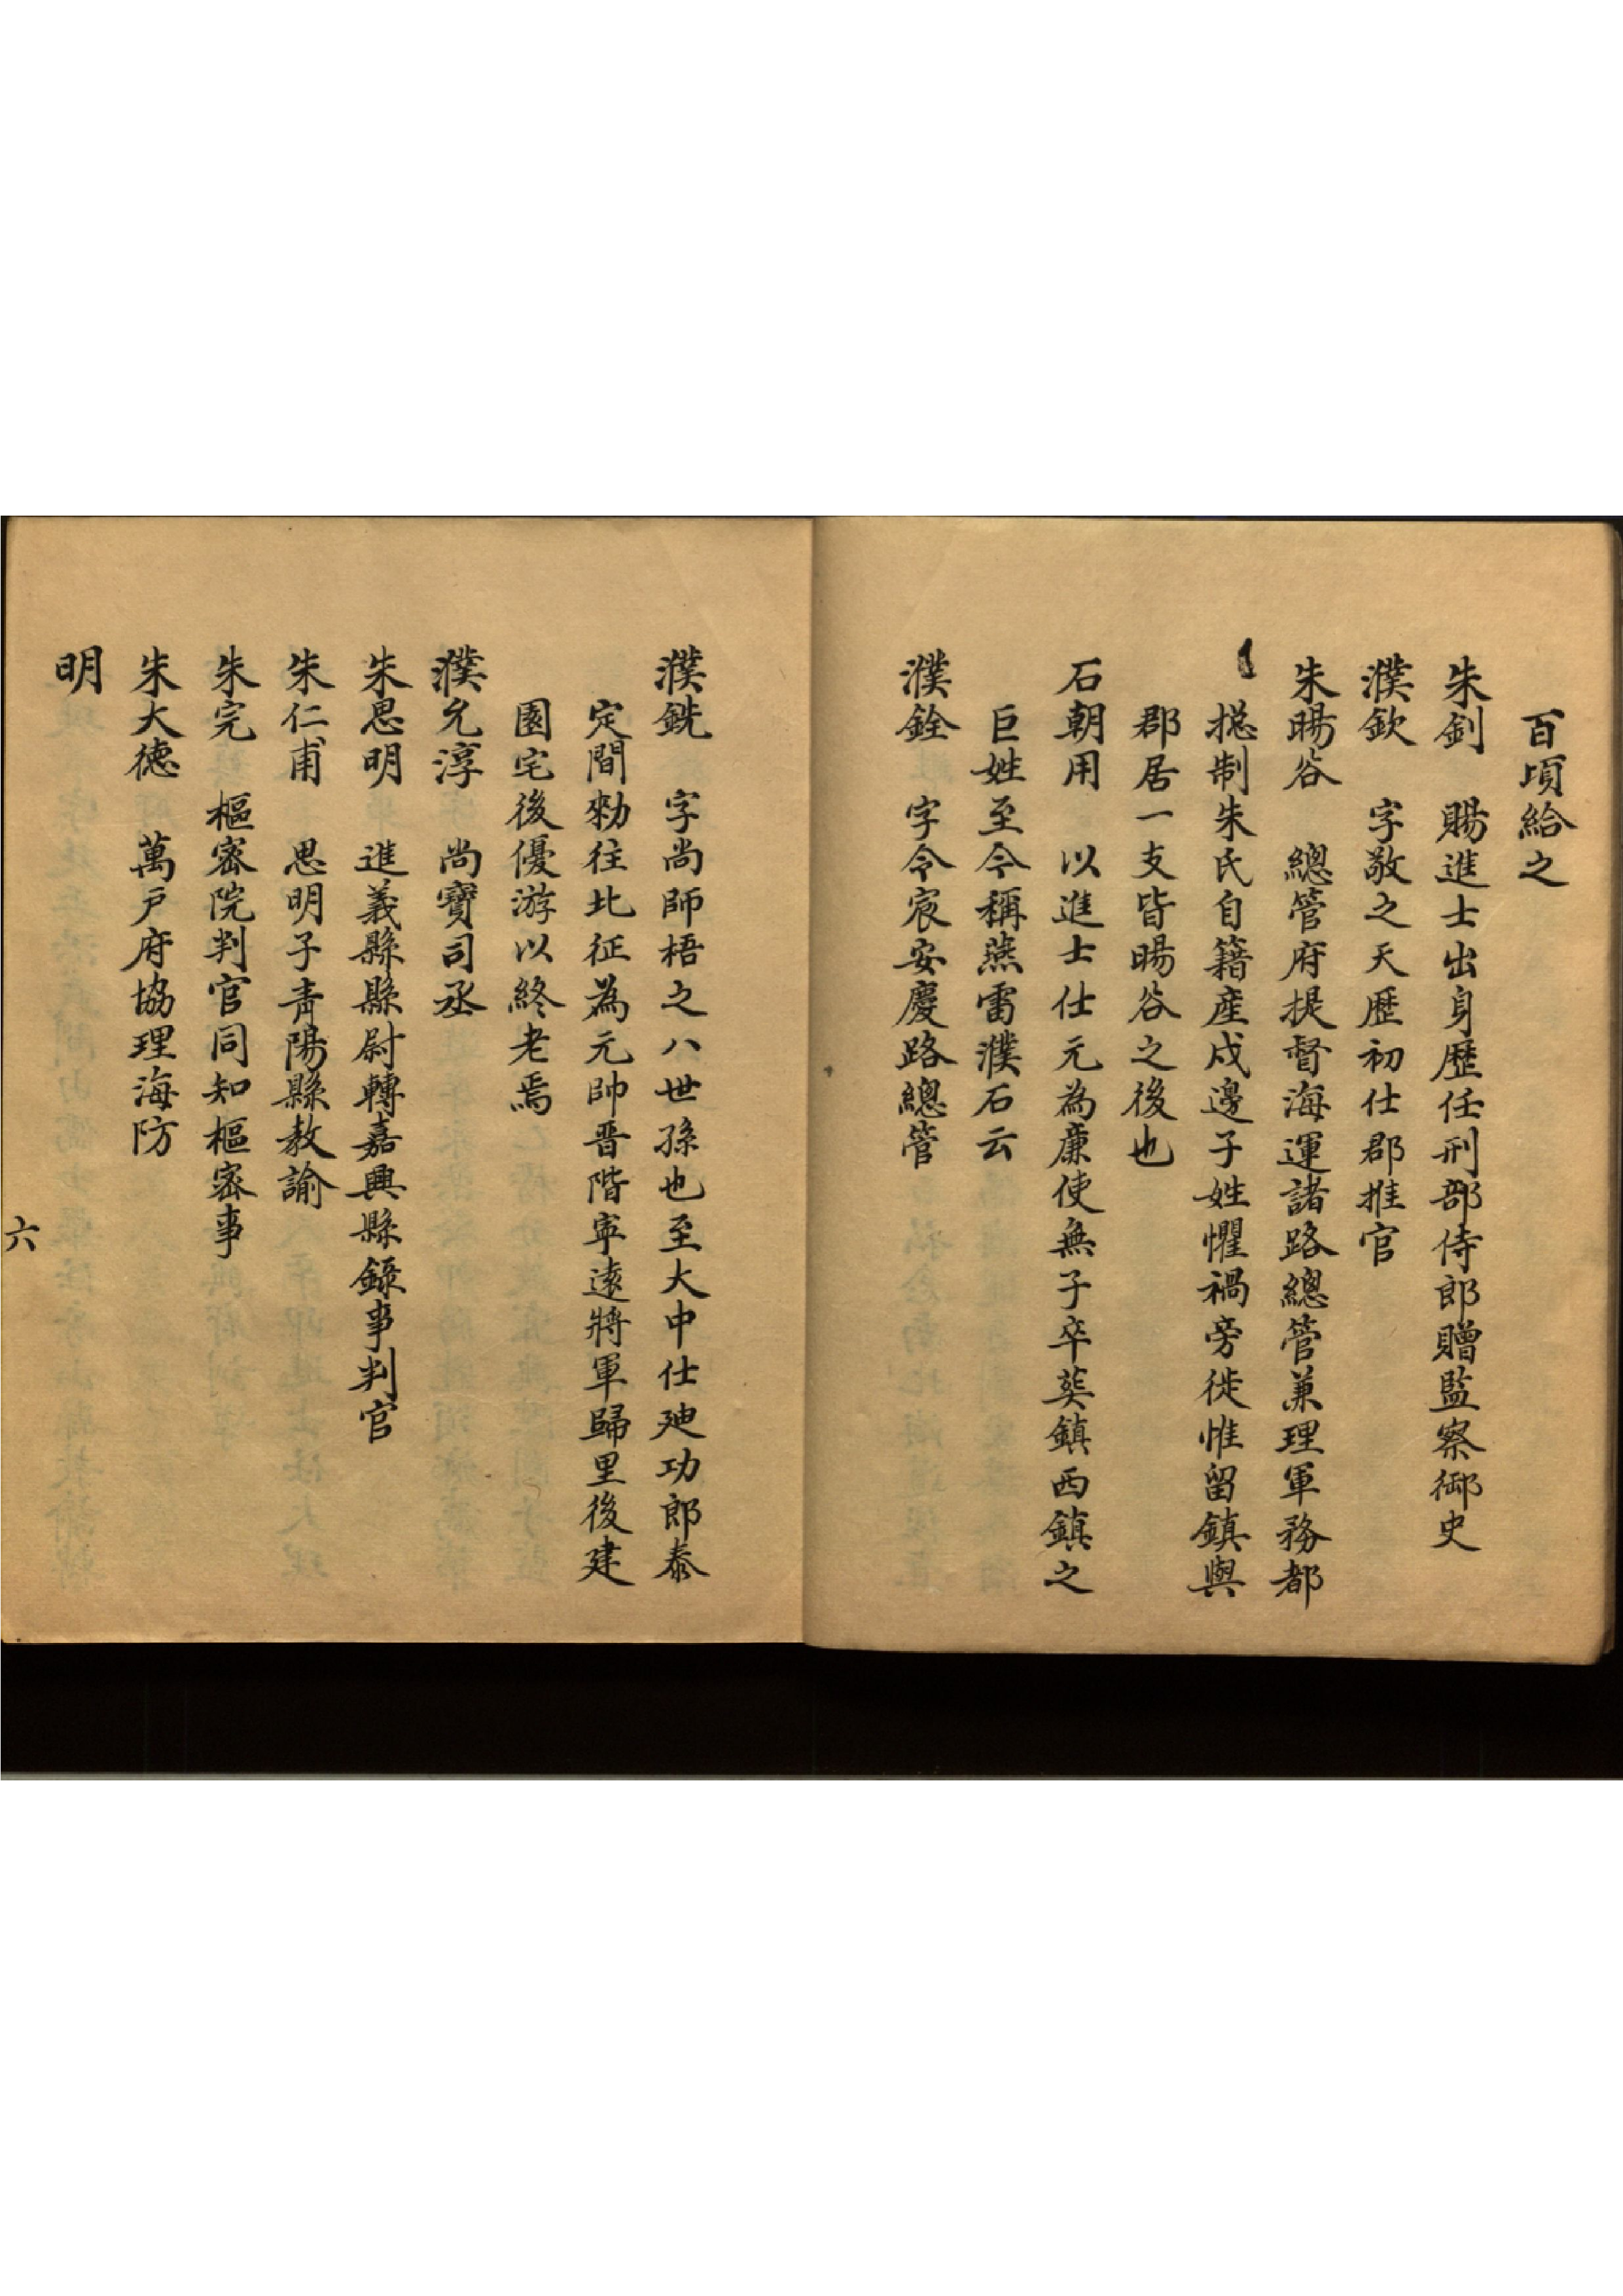 百頃給之
朱釗　賜進士出身歷任刑部侍郎贈監察御史
濮欽　字敬之天歷初仕郡推官
朱暘谷　總管府提督海運諸路總管兼理軍務都
摠制朱氏自籍産戍邊子姓懼禍旁徙惟留鎮與
郡居一支皆暘谷之後也
石朝用　以進士仕元為廉使無子卒葬鎮西鎮之
巨姓至今稱燕雷濮石云
濮銓　字令宸安慶路總管
濮銑　字尚師梧之八世孫也至大中仕迪功郎泰
定間勑往北征為元帥晋階寧遠將軍歸里後建
園宅後優游以終老焉
濮允淳　尚寶司丞
朱思明　進義縣縣尉轉嘉興縣錄事判官
朱仁甫　思明子青陽縣教諭
朱完　樞密院判官同知樞密事
朱大德　萬户府協理海防
明
六